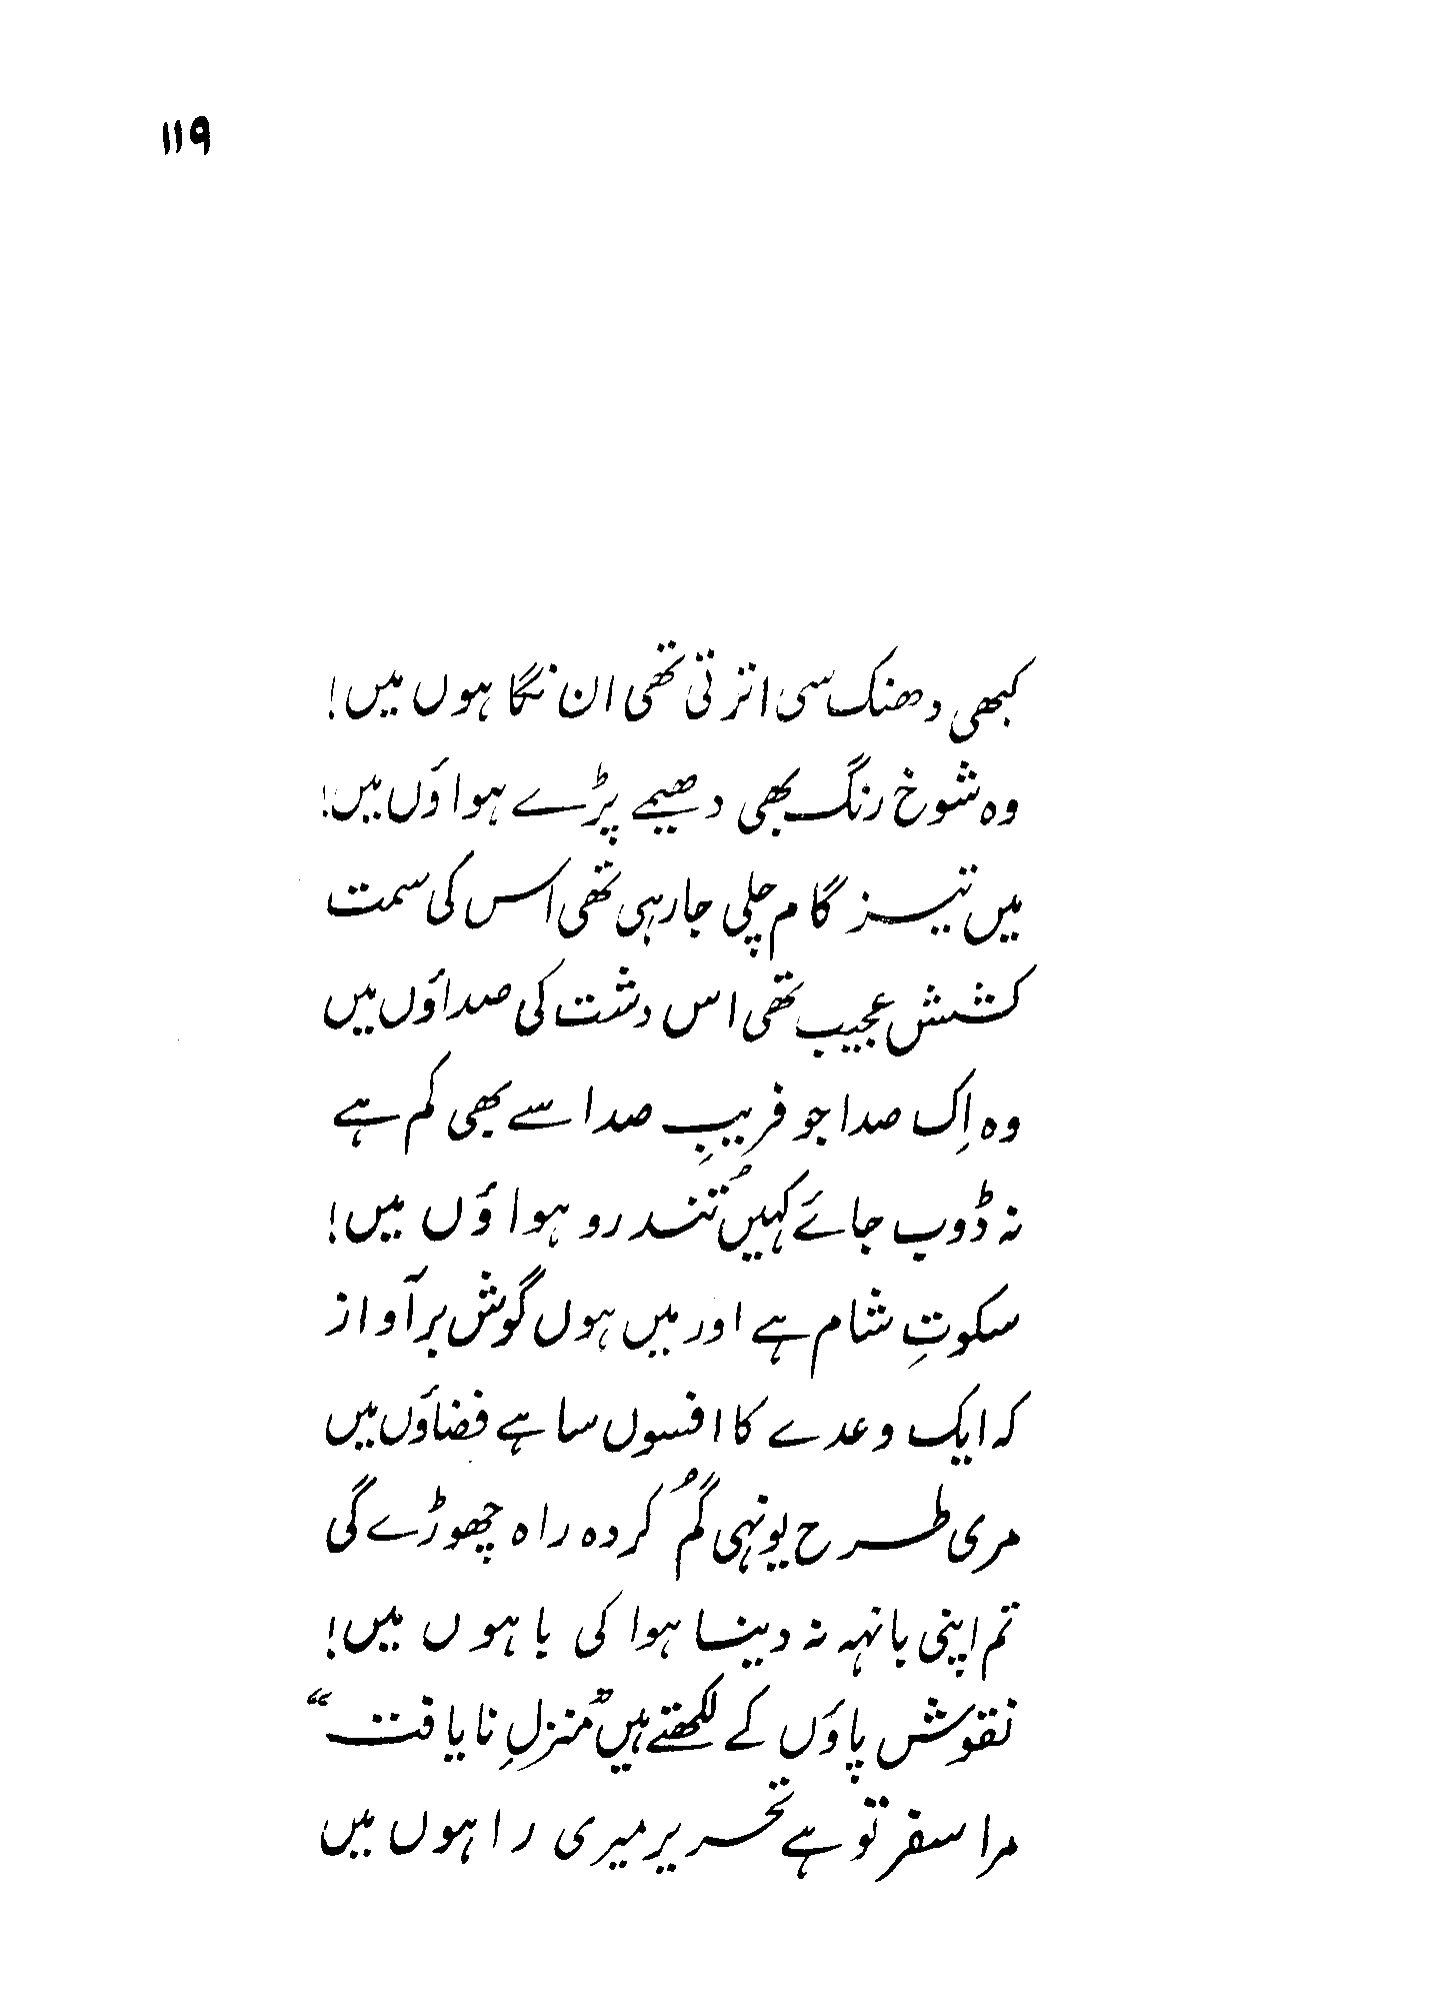 ۱۱۹
کبھی دھنک سی اترتی تھی ان نگاہوں میں!
وہ شوخ رنگ بھی دھیمے پڑے ہواؤں میں!
میں تیز گام چلی جا رہی تھی اس کی سمت
کشش عجیب تھی اس دشت کی صداؤں میں
وہ اِک صدا جو فریبِ صدا سے بھی کم ہے
نہ ڈوب جائے کہیں تُند رو ہواؤں میں!
سکوتِ شام ہے اور میں ہوں گوش بر آواز
کہ ایک وعدے کا افسوں سا ہے فضاؤں میں
مری طرح یونہی گُم کردہ راہ چھوڑے گی
تم اپنی بانہہ نہ دینا ہوا کی باہوں میں!
نقوش پاؤں کے لکھتے ہیں "منزلِ نایافت"
مرا سفر تو ہے تحریر میری راہوں میں